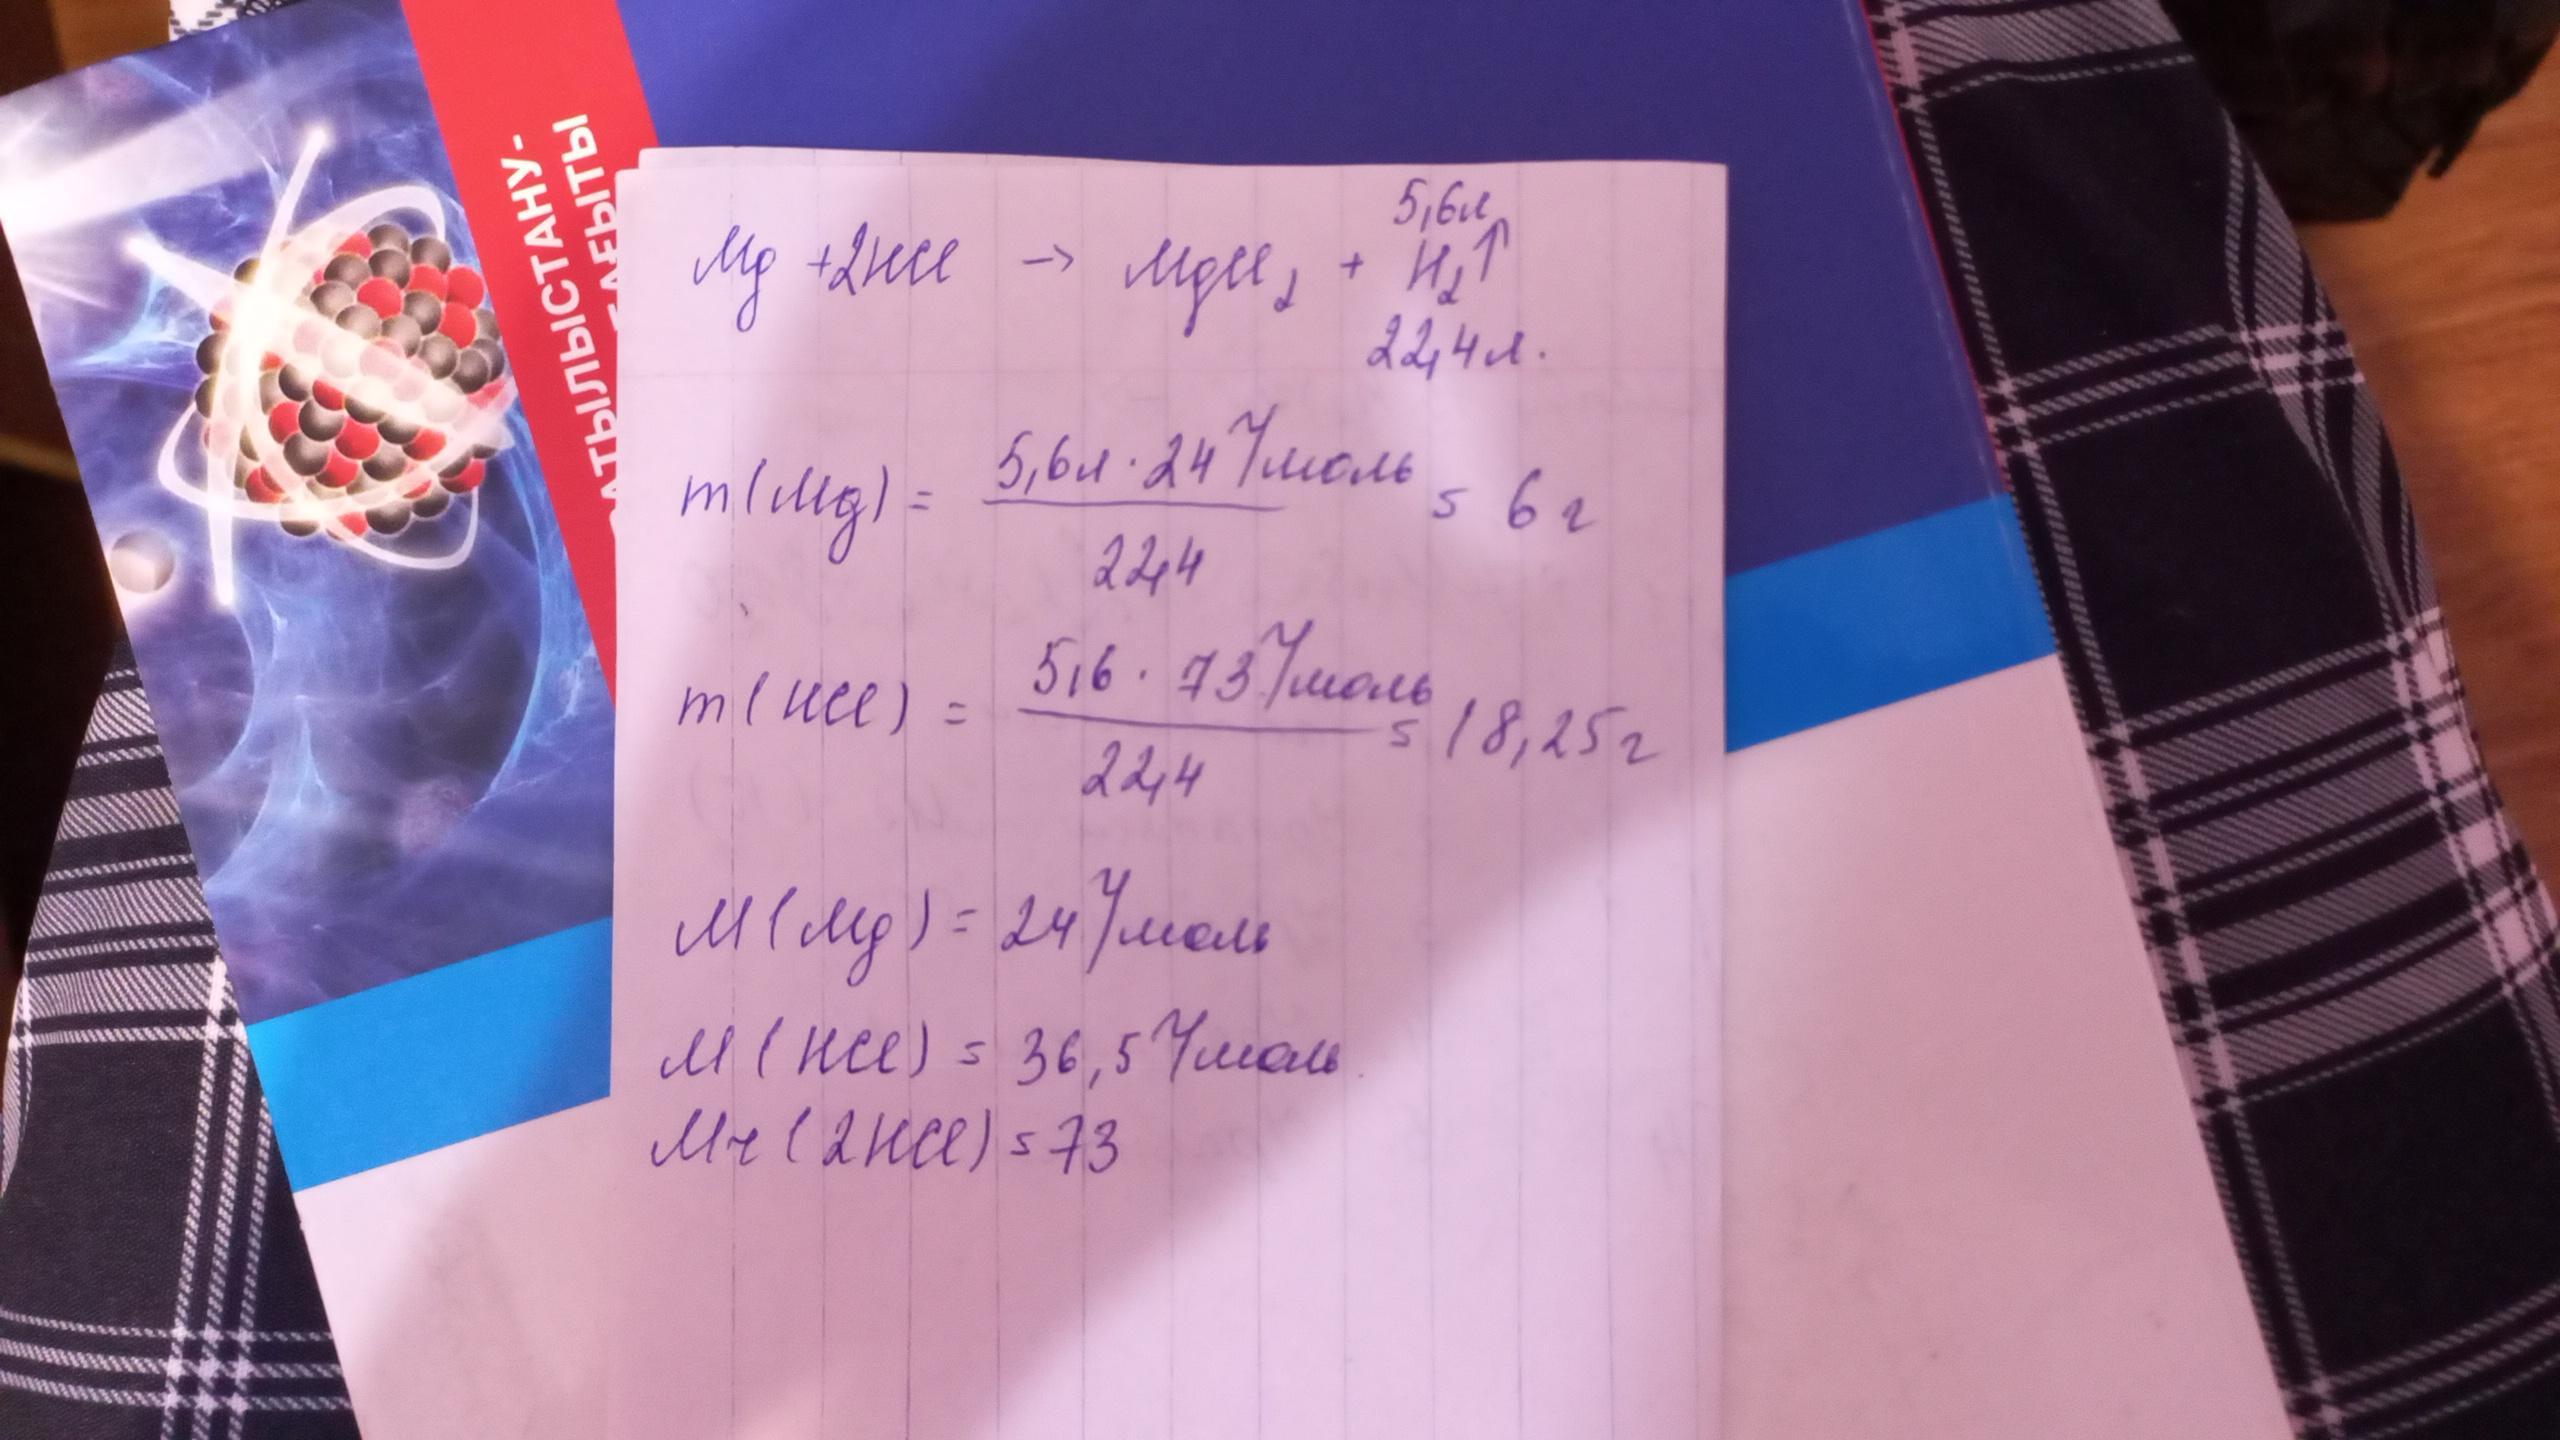 АТЫЛЫСТАНУ-
5,6л
Mg + 2HCl → MgCl₂ + H₂↑
22,4 л.
m(Mg) = 5,6л · 24 г/моль = 6 г
22,4
m(HCl) = 5,6 · 73 г/моль = 18,25 г
22,4
M(Mg) = 24 г/моль
M(HCl) = 36,5 г/моль
Mr(2HCl) = 73